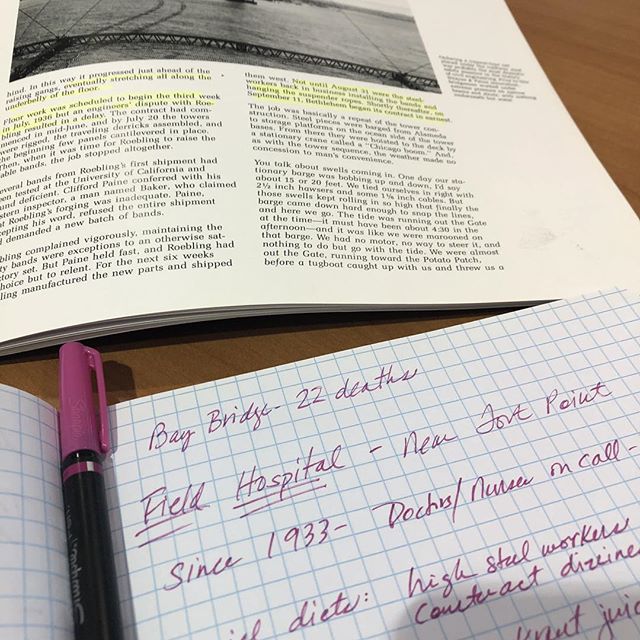 hind. In this way it progressed just ahead of the
raising gangs, eventually stretching all along the
underbelly of the floor.
Floor work was scheduled to begin the third week
in July, 1936 but an engineers' dispute with Roe-
bling resulted in a delay. The contract had com-
menced in mid-June, and by July 20 the towers
were rigged, the traveling derricks assembled, and
the beginning few panels cantilevered in place.
Then, when it was time for Roebling to raise the
able bands, the job stopped altogether.
everal bands from Roebling's first shipment had
een tested at the University of California and
und deficient. Clifford Paine conferred with his
stern inspector, a man named Baker, who claimed
at Roebling's forging was inadequate. Paine,
cepting his word, refused the entire shipment
d demanded a new batch of bands.
bling complained vigorously, maintaining the
ty bands were exceptions to an otherwise sat-
ctory set. But Paine held fast, and Roebling had
hoice but to relent. For the next six weeks
ling manufactured the new parts and shipped
them west. Not until August 31 were the steel-
workers back in business installing the bands and
hanging the suspender ropes. Shortly thereafter, on
September 11, Bethlehem began its contract in earnest.
The job was basically a repeat of the tower con-
struction. Steel pieces were barged from Alameda
to storage platforms on the outside of the tower
bases. From there they were hoisted to the deck by
a stationary crane called a "Chicago boom." And,
as with the tower sequence, the weather made no
concession to man's convenience.
You talk about swells coming in. One day our sta-
tionary barge was bobbing up and down, I'd say
about 15 or 20 feet. We tied ourselves in right with
2½ inch hawsers and some 1⅛ inch cables. But
those swells kept rolling in so high that finally the
barge came down hard enough to snap the lines,
and here we go. The tide was running out the Gate
at the time—it must have been about 4:30 in the
afternoon—and it was like we were marooned on
that barge. We had no motor, no way to steer it, and
nothing to do but go with the tide. We were almost
out the Gate, running toward the Potato Patch,
before a tugboat caught up with us and threw us a
Bay Bridge - 22 deaths
Field Hospital - near Fort Point
Since 1933 - Doctors/Nurse on call -
diets: high steel workers
counteract
juic
Sharpie